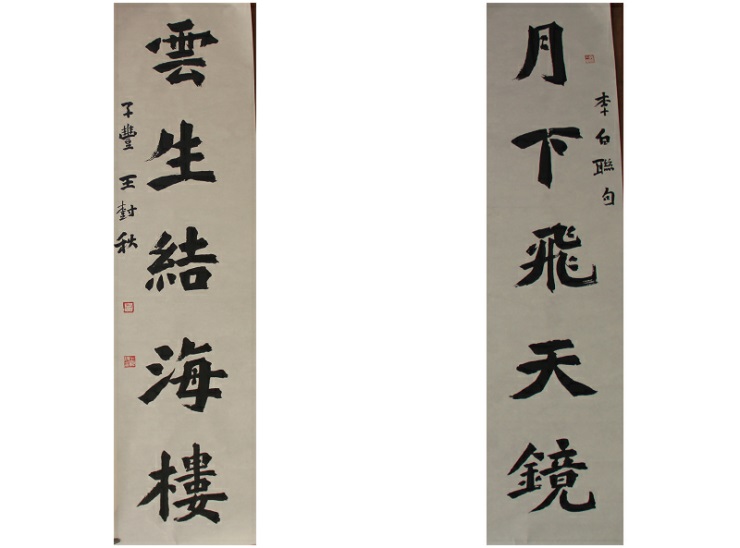 月下飛天鏡
李白聯句
雲生結海樓
子豐 王封秋